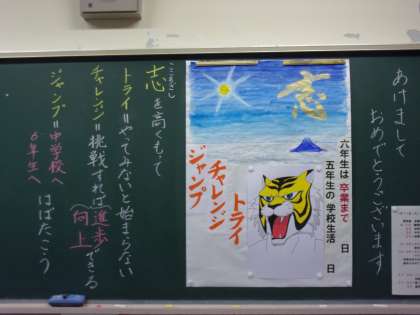 あけまして
おめでとうございます
志
六年生は 卒業まで 日
五年生の 学校生活 日
トライ
チャレンジ
ジャンプ
こころざし
志を高くもって
トライ＝やってみないと始まらない
チャレンジ＝挑戦すれば（進歩 向上）できる
ジャンプ＝中学校へ 6年生へ はばたこう